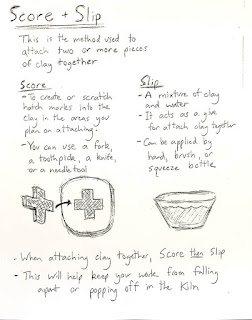 Score + Slip
This is the method used to
attach two or more pieces
of clay together
Score
- To create or scratch
hatch marks into the
clay in the areas you
plan on attaching.
- You can use a fork,
a toothpick, a knife,
or a needle tool
Slip
- A mixture of clay
and water
- It acts as a glue
for attach clay together
- Can be applied by
hand, brush, or
squeeze bottle
- When attaching clay together, Score then Slip
- This will help keep your work from falling
apart or popping off in the Kiln